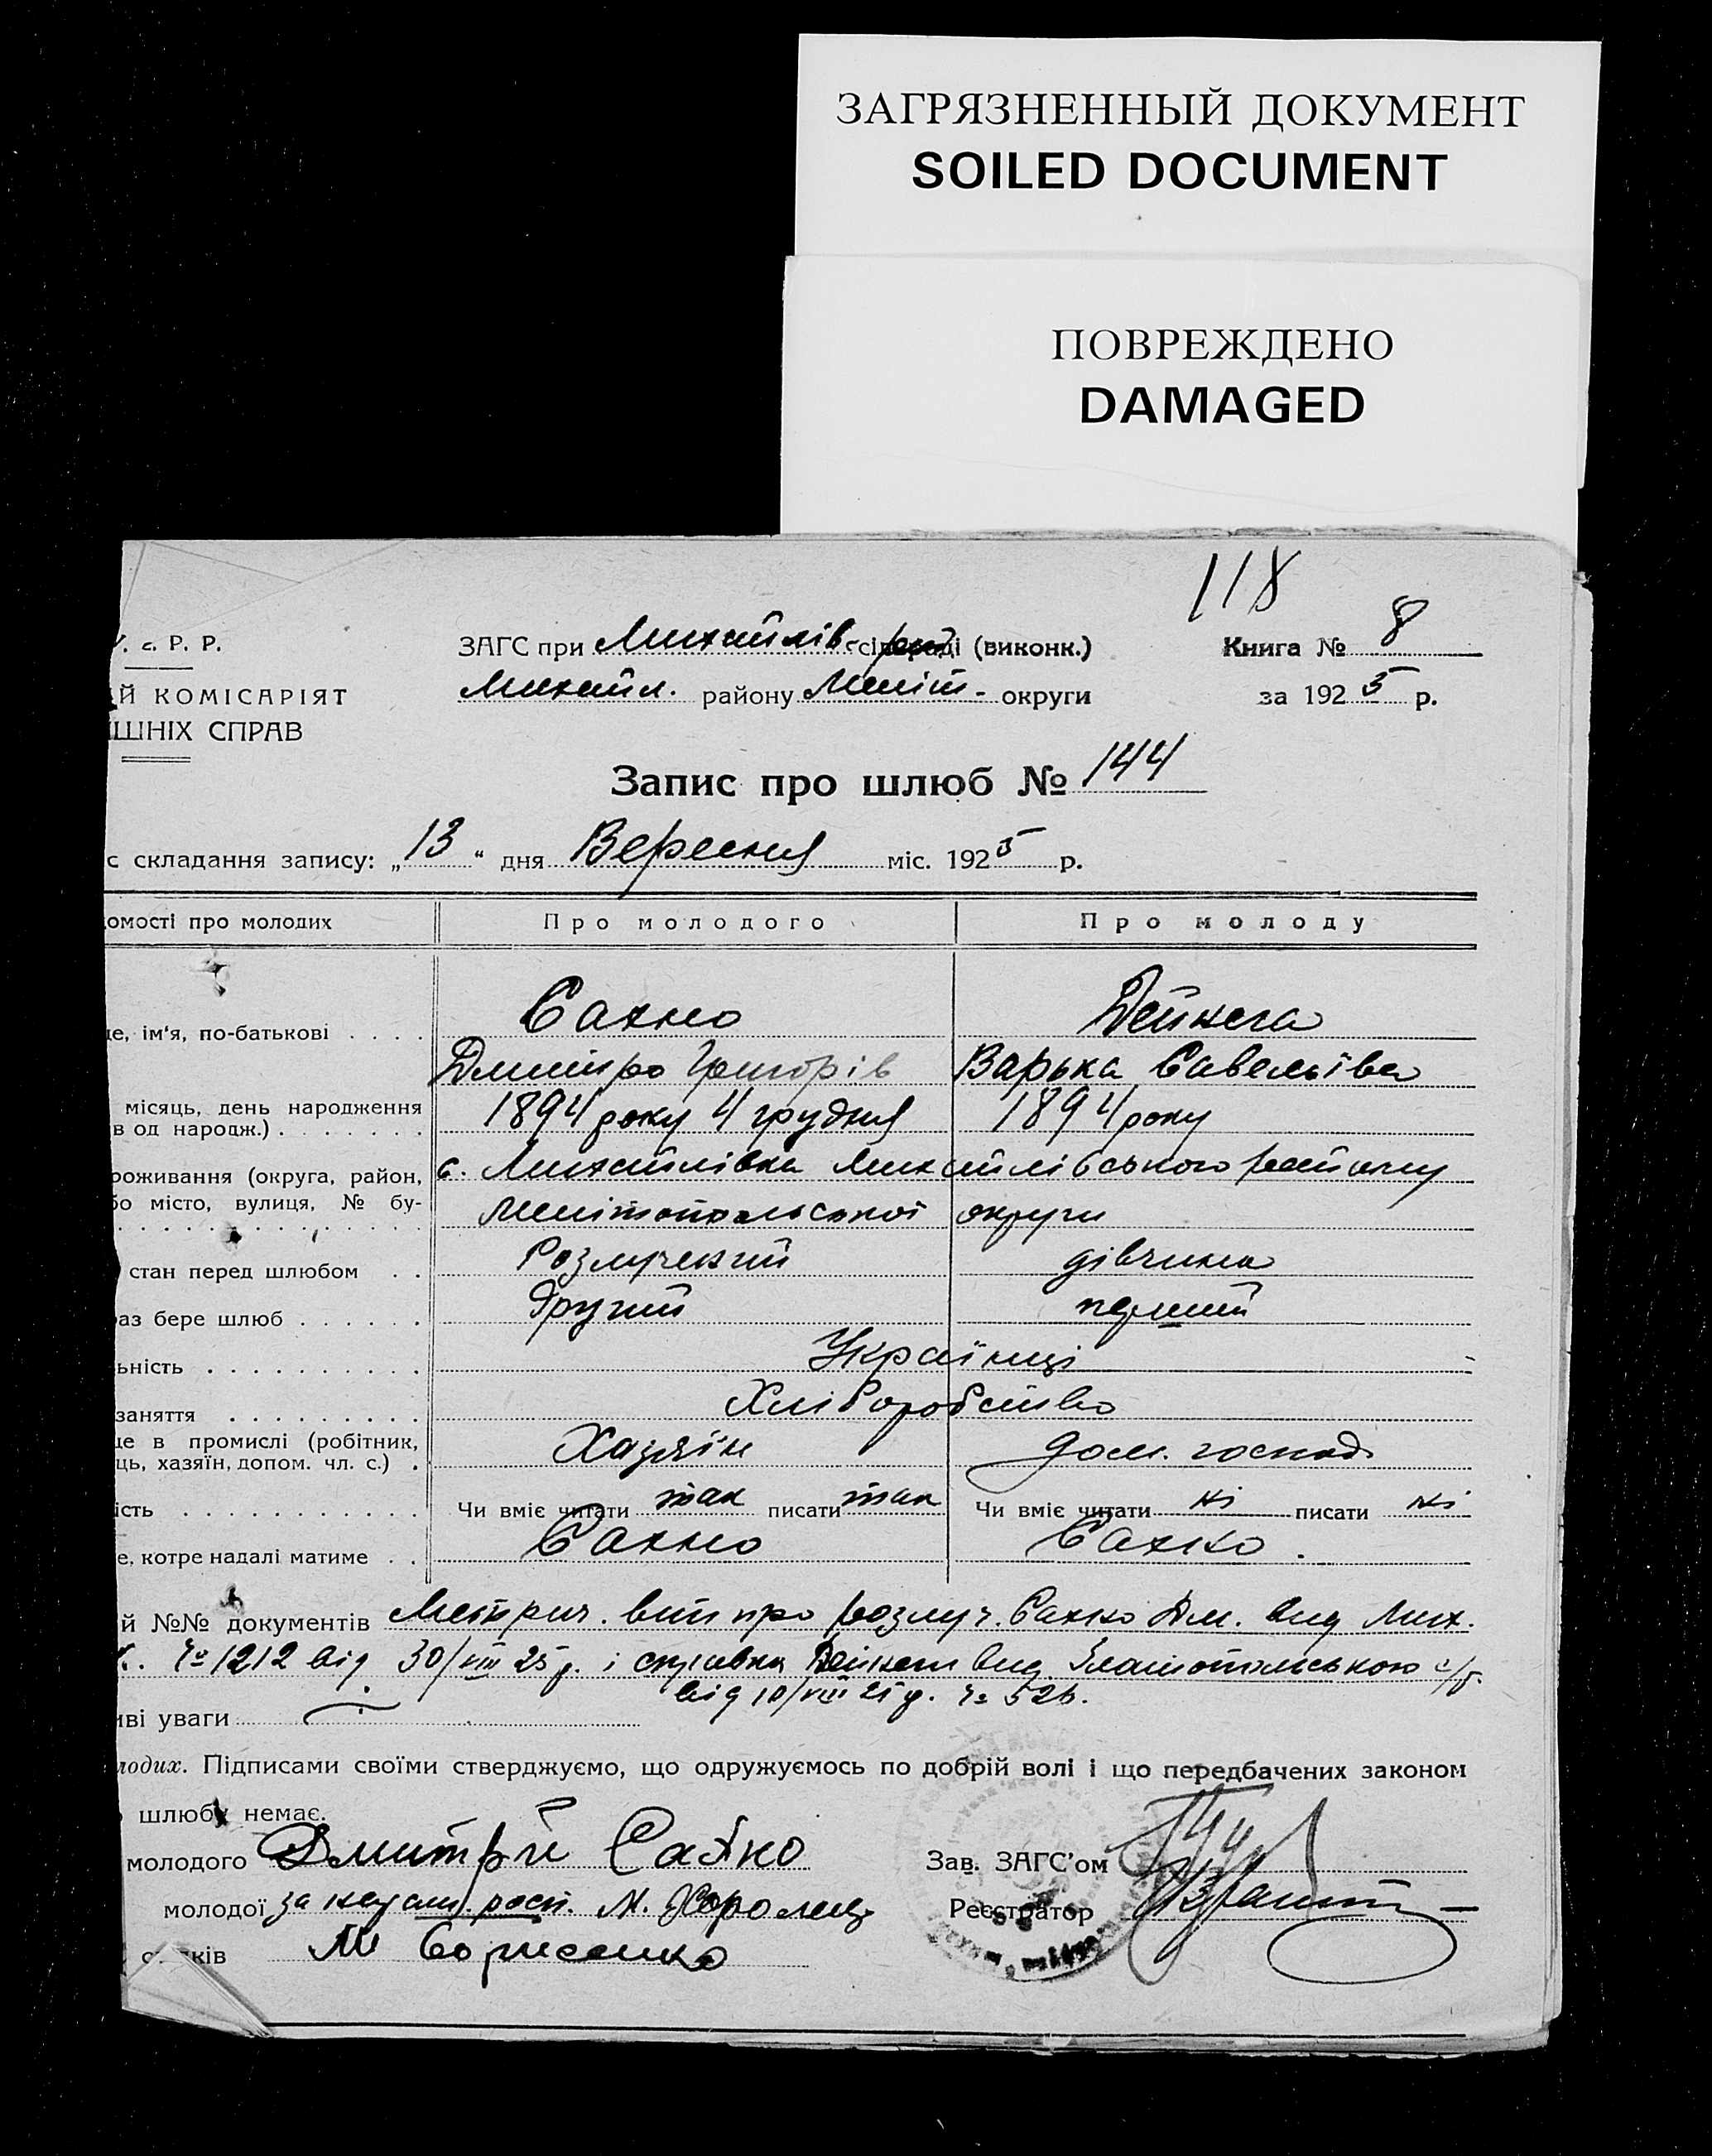 ЗАГРЯЗНЕННЫЙ ДОКУМЕНТ
SOILED DOCUMENT
ПОВРЕЖДЕНО
DAMAGED
118
У. С. Р. Р.
ЗАГС при Михайлів. (виконк.)
Книга № 8
Й КОМІСАРІЯТ
Михайл. району Меліт. округи
за 1925 р.
ШНІХ СПРАВ
Запис про шлюб № 144
с складання запису: „13" дня Вересня міс. 1925 р.
омості про молодих
Про молодого
Про молоду
Сахно
Дейнега
е, ім'я, по-батькові
Дмитро Григорів
Варька Савельїва
місяць, день народження
в од народж.)
1894 року 4 грудня
1894 року
роживання (округа, район,
с. Михайлівка Михайлівського району
бо місто, вулиця, № бу-
Мелітопольської округи
стан перед шлюбом
Розлучений
дівчина
аз бере шлюб
Другий
перший
ьність
Українці
заняття
Хліборобство
це в промислі (робітник,
ць, хазяїн, допом. чл. с.)
Хазяїн
дом. господ.
ість
Чи вміє читати так писати так
Чи вміє читати ні писати ні
е, котре надалі матиме
Сахно
Сахно.
й №№ документів Метрич. вит про розлуч. Сахно Дм. вид Мих.
№ 1212 від 30/VIII 25 р. і справка Дейнеги вид. Златопольською с/р.
від 10/VIII 25 р. № 526.
иві уваги
лодих. Підписами своїми стверджуємо, що одружуємось по добрій волі і що передбачених законом
шлюбу немає.
молодого Дмитрій Сахно
Зав. ЗАГС'ом
молодої за неграм. росп. М. Королец
Реєстратор
свідків М Борисенко